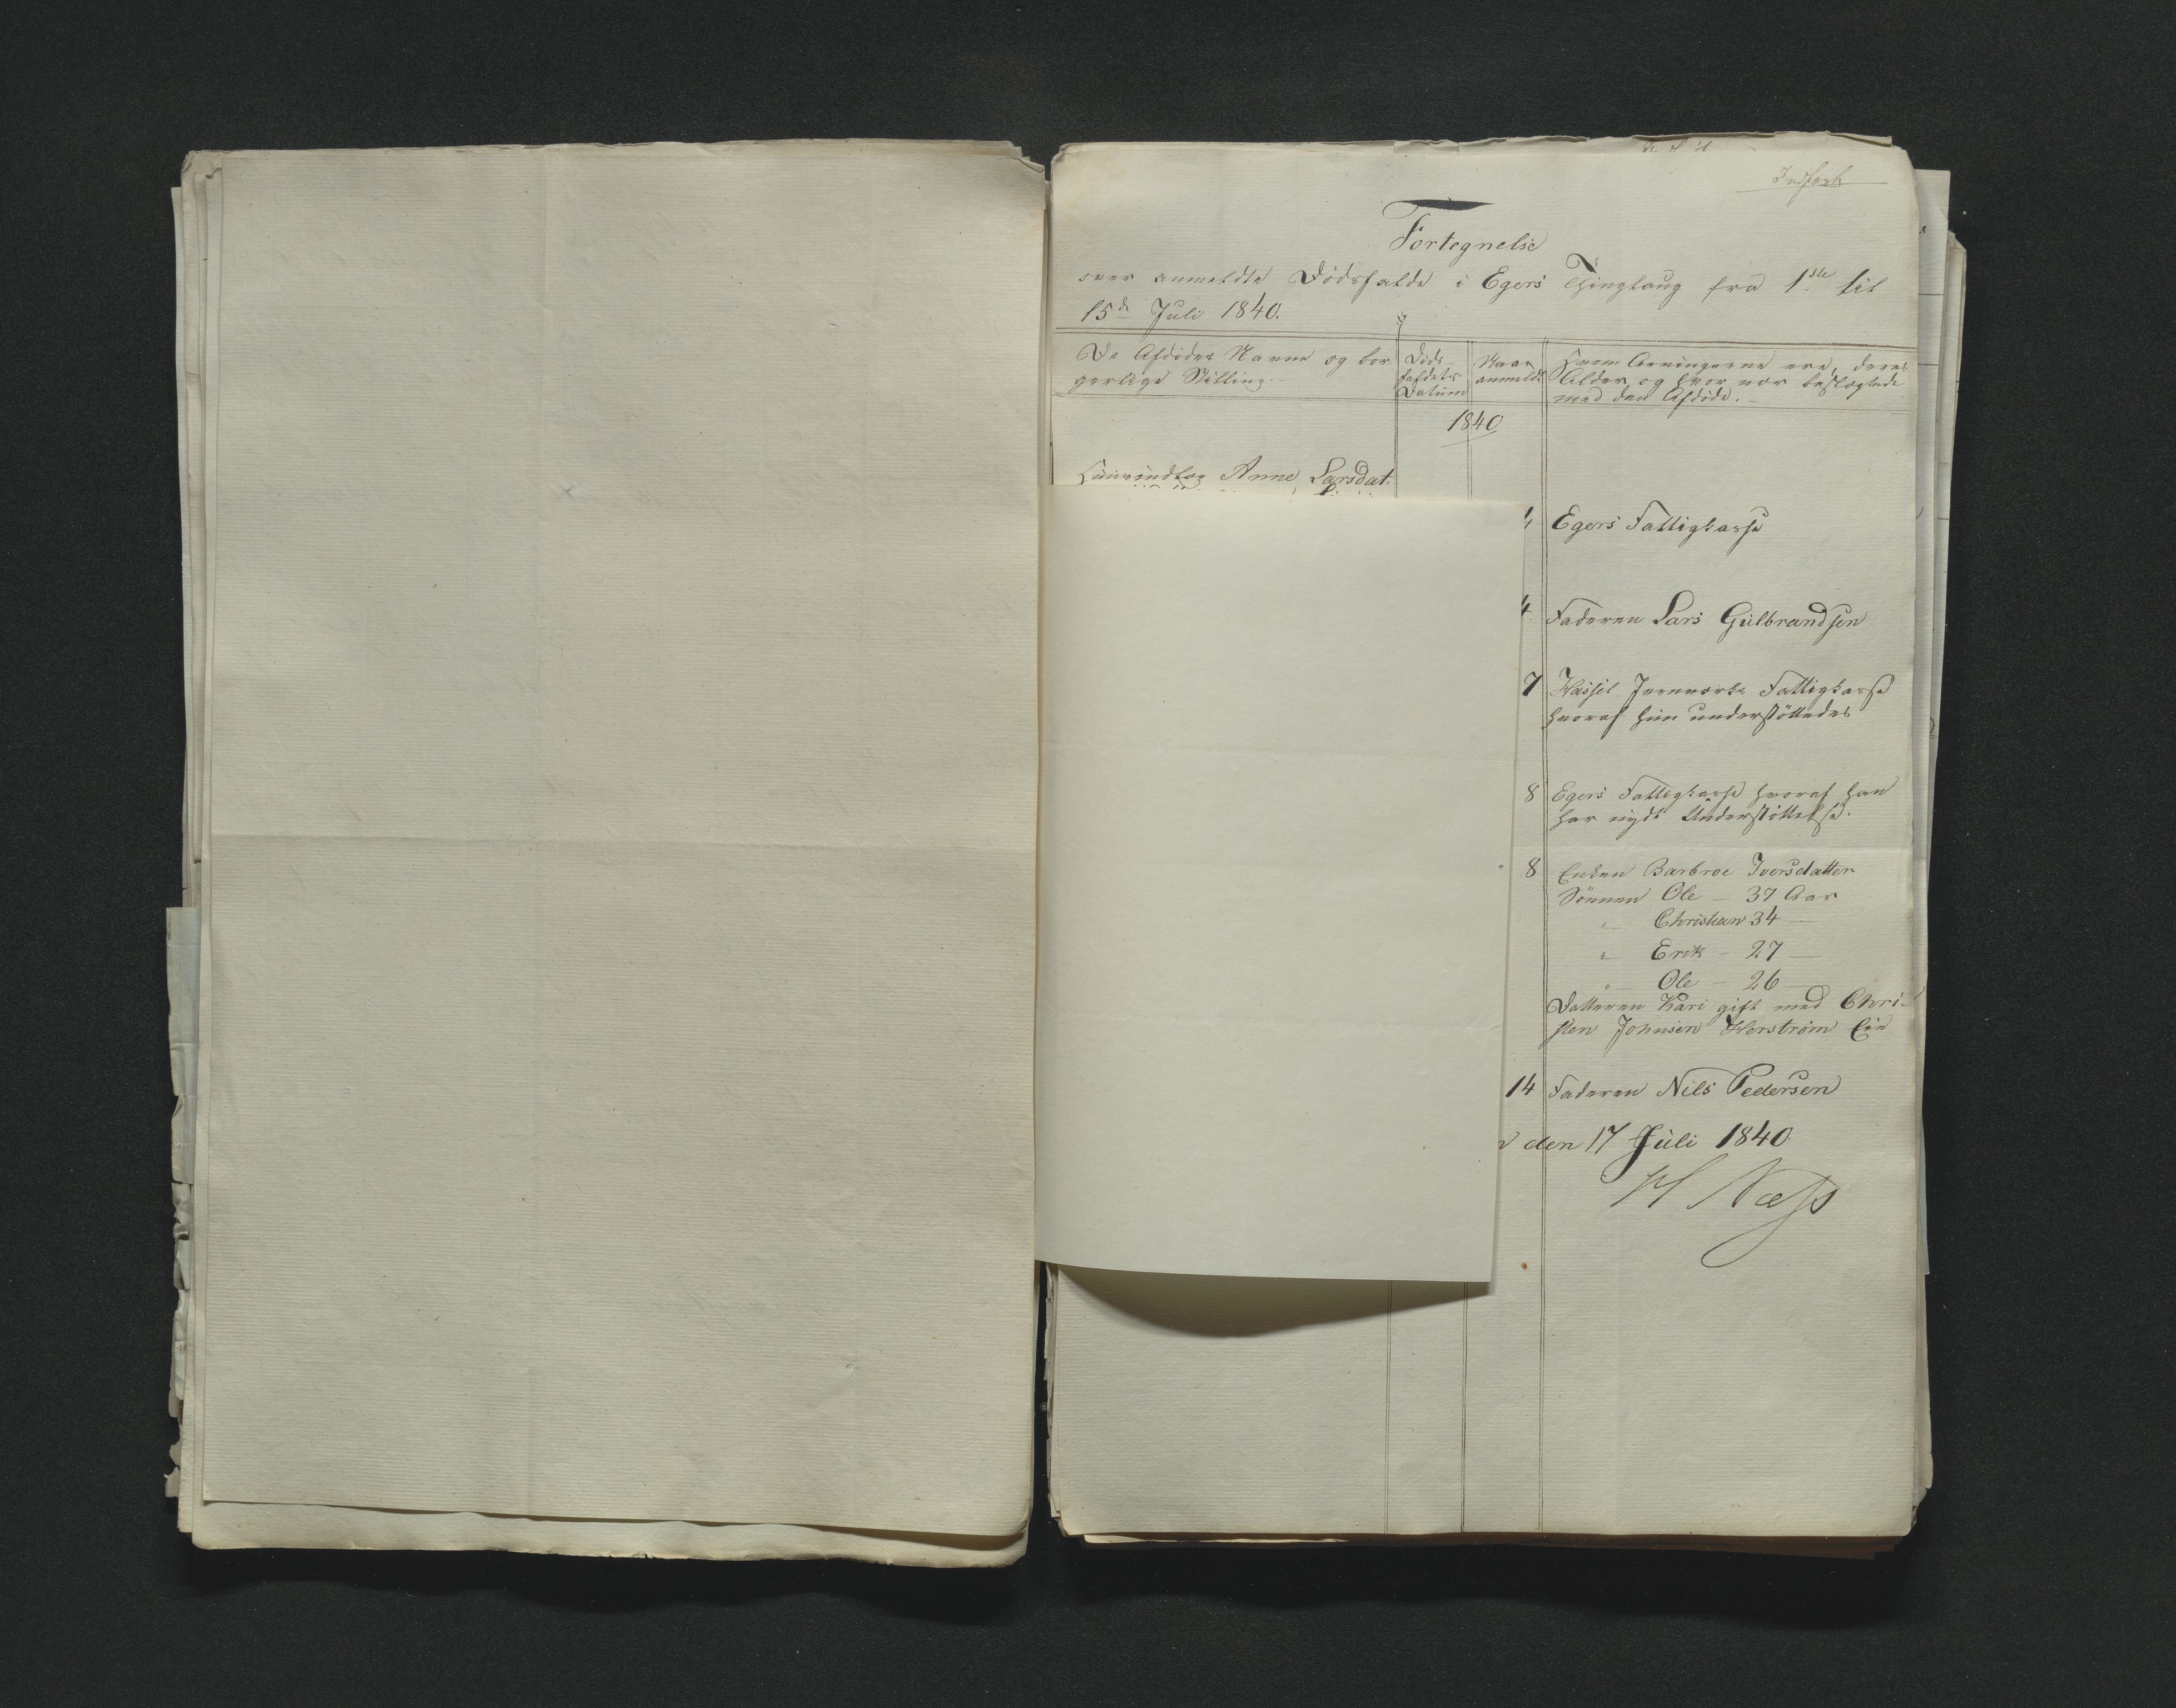 Indført
Fortegnelse
over anmeldte Dødsfalde i Egers Thinglaug fra 1ste til
15de Juli 1840.
De Afdødes Navne og bor
gerlige Stilling.
Døds
faldets
Datum
Naar
anmeldt
Hvem Arvingerne ere, deres
Alder, og hvor nær beslægtede
med den Afdøde.
1840
Anne Larsdat:
4 Egers Fattigkasse
4 Faderen Lars Gulbrandsen
7 Hassel Jernverks Fattigkasse
hvoraf hun understøttedes
8 Egers Fattigkasse hvoraf han
har nydt Understøttelse.
8 Enken Barbroe Iversdatter
Sønnen Ole – 37 Aar
" Christian 34 —
" Erik – 27 —
" Ole – 26 —
Datteren Kari gift med Chri-
sten Johnsen
14 Faderen Nils Pedersen
den 17 Juli 1840
H Næss